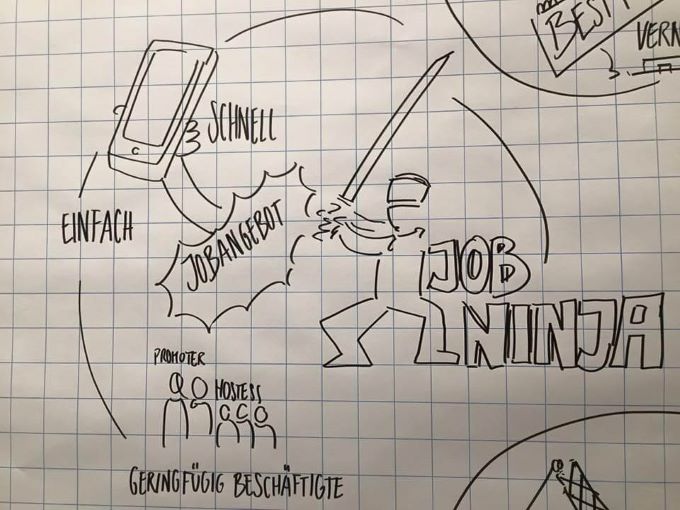 SCHNELL
EINFACH
JOBANGEBOT
JOB
NINJA
PROMOTER
HOSTESS
GERINGFÜGIG BESCHÄFTIGTE